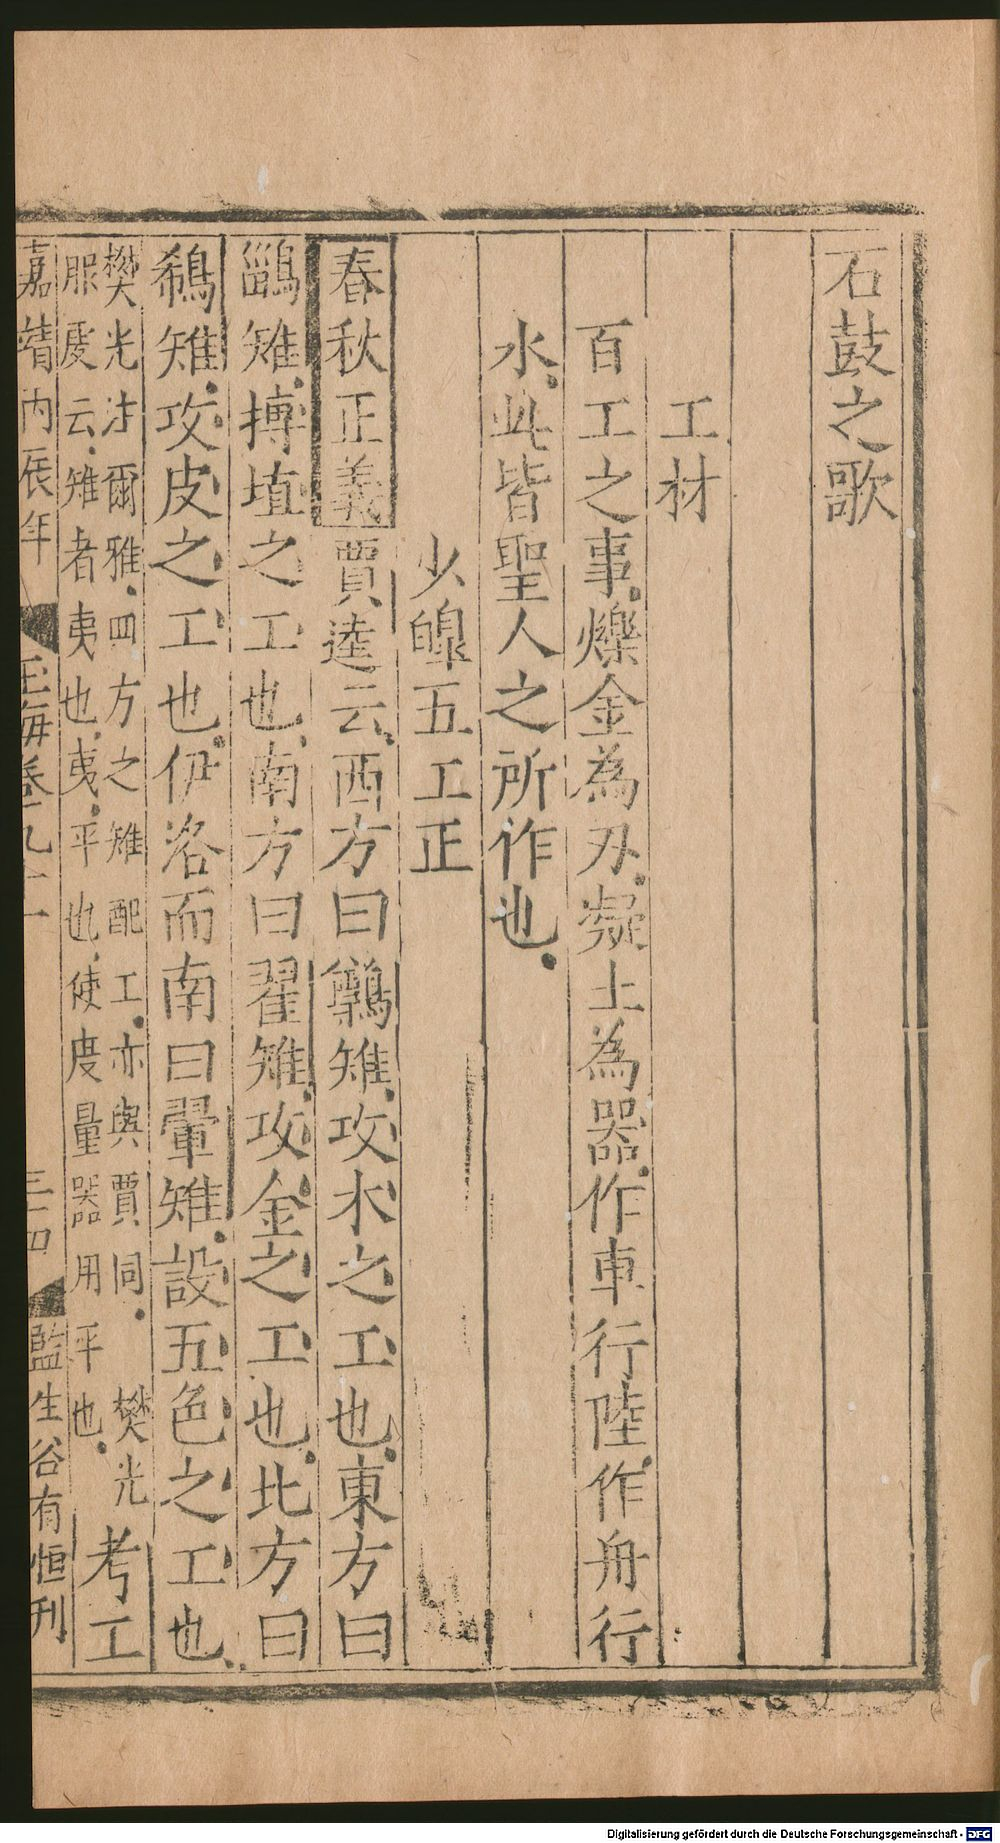 石鼓之歌
工材
百工之事爍金為刃凝土為器作車行陸作舟行
水此皆聖人之所作也
少皥五工正
春秋正義賈逵云西方曰鷷雉攻木之工也東方曰
鶅雉摶埴之工也南方曰翟雉攻金之工也北方曰
鵗雉攻皮之工也伊洛而南曰翬雉設五色之工也
樊光注爾雅四方之雉配工亦與賈同 樊光
服虔云雉者夷也夷平也使度量器用平也
考工
嘉靖丙辰年 玉海卷九十一 三四 監生谷有恒刊
Digitalisierung gefördert durch die Deutsche Forschungsgemeinschaft - DFG